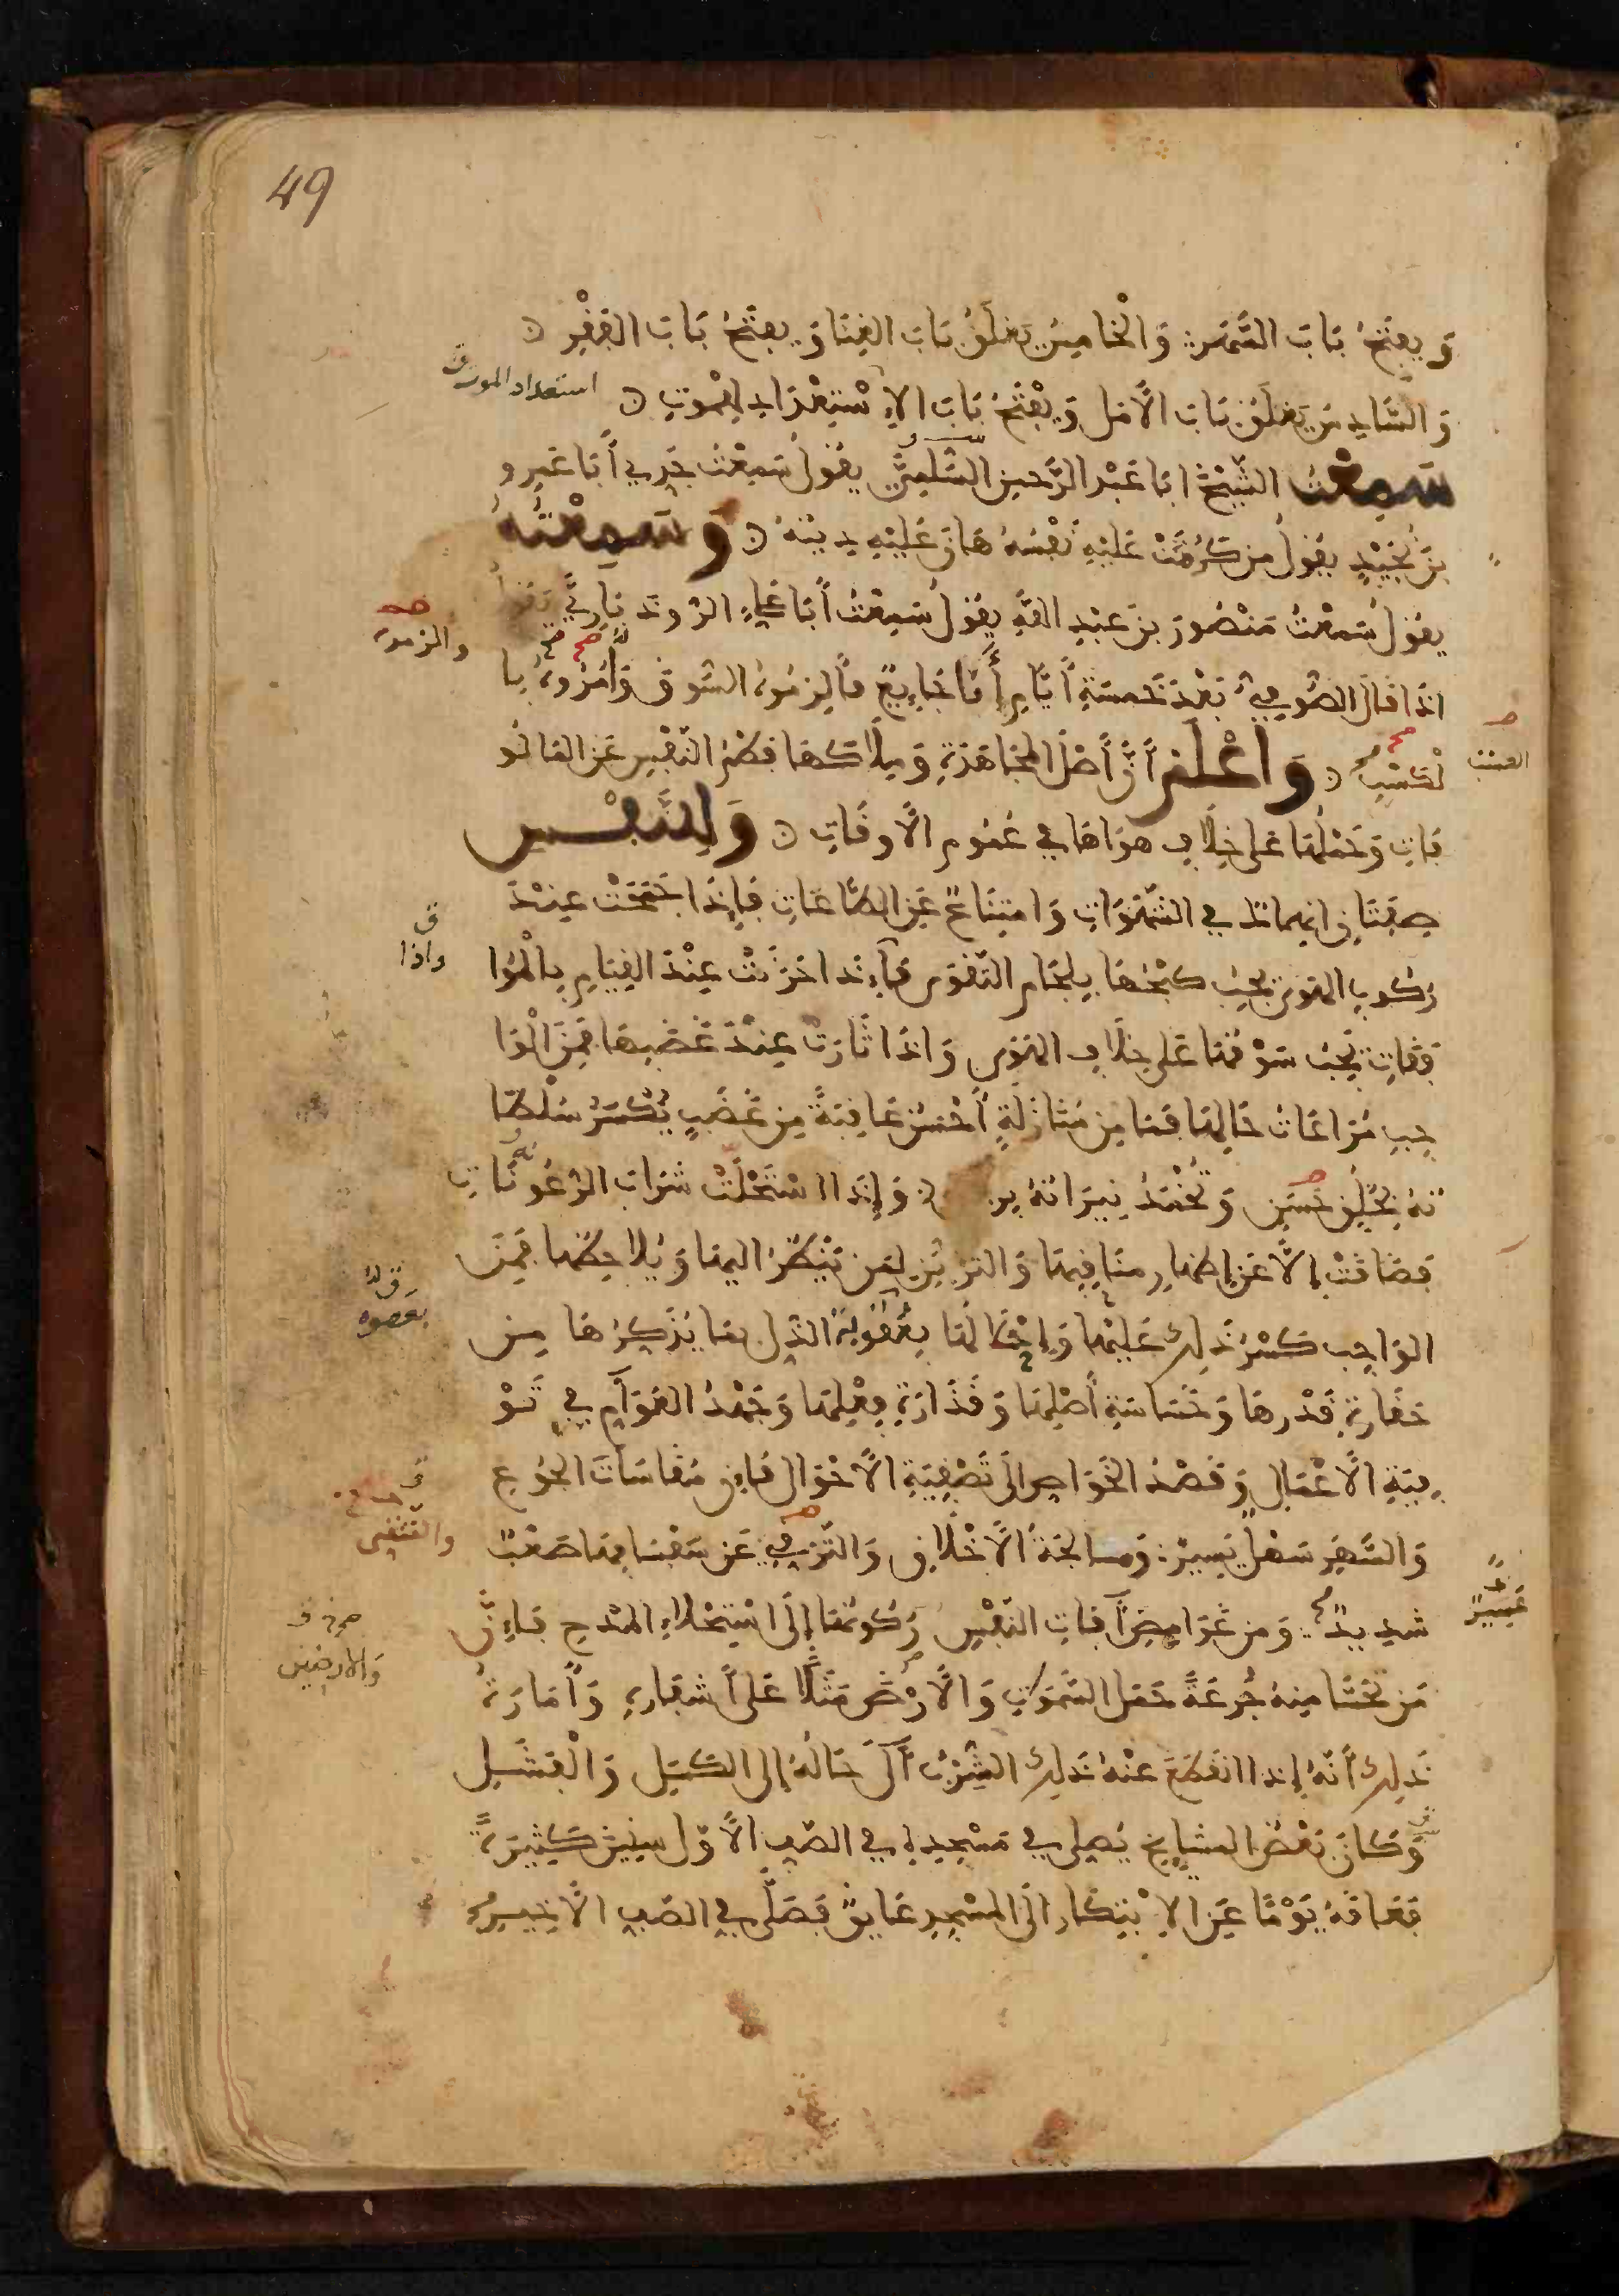 49
وَيفتَحُ بَابَ السَّهَر وَالْخَامِسُ يَغلَقُ بَابَ الغِنَا وَيفتَحُ بَابَ الفَقْرِ
وَالسَّادِسُ يَغلَقُ بَابَ الأَمَل وَيفْتَحُ بَابَ الاِسْتِعْدَادِ لِلْمَوْتِ
استعداد الموت ق
سَمِعْتُ الشَّيْخَ ابَا عَبْدِ الرَّحمنِ السُّلَمِيَّ يقُولُ سَمِعْتُ جَدِّي أَبَا عَمرو
بنَ نُجَيْدٍ يقُولُ مَن كَرُمَتْ عَلَيْهِ نَفْسُهُ هَانَ عَلَيْهِ دِينُهُ وَسَمِعْتُهُ
يقُولُ سَمعْتُ مَنْصُورَ بنَ عَبْدِ اللَّهِ يقُولُ سَمِعْتُ أَبَا عَلِيٍّ الرُّوذَبَارِيَّ يَقُولُ
والزموه
اذَا قَالَ الصُّوفِي بَعْدَ خَمسَةِ أَيَّامٍ أَنَا جَايِعٌ فَأَلزِمُوهُ السُّوقَ وَأْمُرُوهُ با
لْكَسْبِ وَاعْلَم أَنَّ أَصْلَ المُجَاهَدَةِ وَمِلَاكَهَا فَطْمُ النَّفْسِ عَنِ المَالُو
فَاتِ وَحَمْلُهَا عَلى خِلَافِ هَوَاهَا فِي عُمُومِ الأَوقَاتِ وَلِلنَّفْسِ
صِفَتَانِ انهِمَاكٌ فِي الشَّهَوَاتِ وَامتِنَاعٌ عَنِ الطَّاعَاتِ فَإِذَا جَمَحَتْ عِنْدَ
واذا ق
رُكُوبِ الهَوَى يَجِبُ كَبْحُهَا بِلجَامِ التَّقْوَى فَإِذَا حَرَنَتْ عِنْدَ القِيَامِ بِالْمُوَا
فَقَاتِ يَجِبُ سَوْقُهَا عَلى خلَافِ الهَوَى وَاذَا ثَارَتْ عِنْدَ غَضَبِهَا فَمِنَ الْوَا
جِبِ مُرَاعَاتُ حَالِهَا فَمَا مِن مُنَازَلَةٍ أَحْسَنُ عَاقِبَةً مِن غَضَبٍ يُكْسَرُ سُلْطَا
نُهُ بِخُلُقٍ حَسَنٍ وَتُخْمَدُ نِيرَانُهُ بر وَإِذَا اسْتَحْلَتْ شَرَابَ الرُّعُونَاتِ
فَضَاقَتْ إِلَّا عَن إِظهَارِ مَنَاقِبِهَا وَالتَزَيُّنِ لِمَن يَنْظُرُ اليهَا وَيُلَاحِظُهَا فَمِنَ
بعقوبه
الوَاجِبِ كَسْرُ ذَلِك عَلَيْهَا وَإِحْلَالُهَا بِعُقُوبَةِ الذُّل بِمَا يُذَكِّرُهَا مِن
حَقَارَةِ قَدْرِهَا وَخَسَاسَةِ أَصْلِهَا وَقَذَارَةِ فِعْلِهَا وَجَهْدُ العَوَامِّ فِي تَوْ
فِيَةِ الأَعْمَالِ وَقَصْدُ الخَوَاصِ الَى تَصْفِيَةِ الأَحْوَالِ فَإِن مُقَاسَاتَ الجُوعِ
والتنقي
وَالسَّهَرِ سَهل يَسِير وَمعالجَةُ الأَخْلَاقِ وَالتَّرَقِّي عَن سَفسافِهَا صَعْبٌ
عَسِيرٌ
شدِيدٌ وَمن غَوَامِضِ آفَاتِ النَّفْسِ رُكُونُهَا إِلَى اسْتِحْلَاءِ المَدْحِ فَإِنَّ
والارضين
مَن تَحَسَّا مِنهُ جُرعَةً حَمَلَ السَّمَوَاتِ وَالأَرْضَ مَثَلًا عَلى أَشفَارِهِ وَأَمَارَةُ
ذَلِك أَنَّهُ إِذَا انقَطَعَ عَنْهُ ذَلِك الشِّرْبُ آلَ حَالُهُ إِلى الكَسَلِ وَالْفَشَلِ
وَكَانَ بَعْضُ المشَايِخِ يُصلي فِي مَسْجِدِهِ فِي الصَّفِ الأَوَّلِ سِنِينَ كَثِيرَةً
فَعَاقَهُ يَوْمًا عَنِ الاِبْتِكَارِ الَى المَسْجِدِ عَايِقٌ فَصَلَّى فِي الصَّفِ الأَخِيرِ